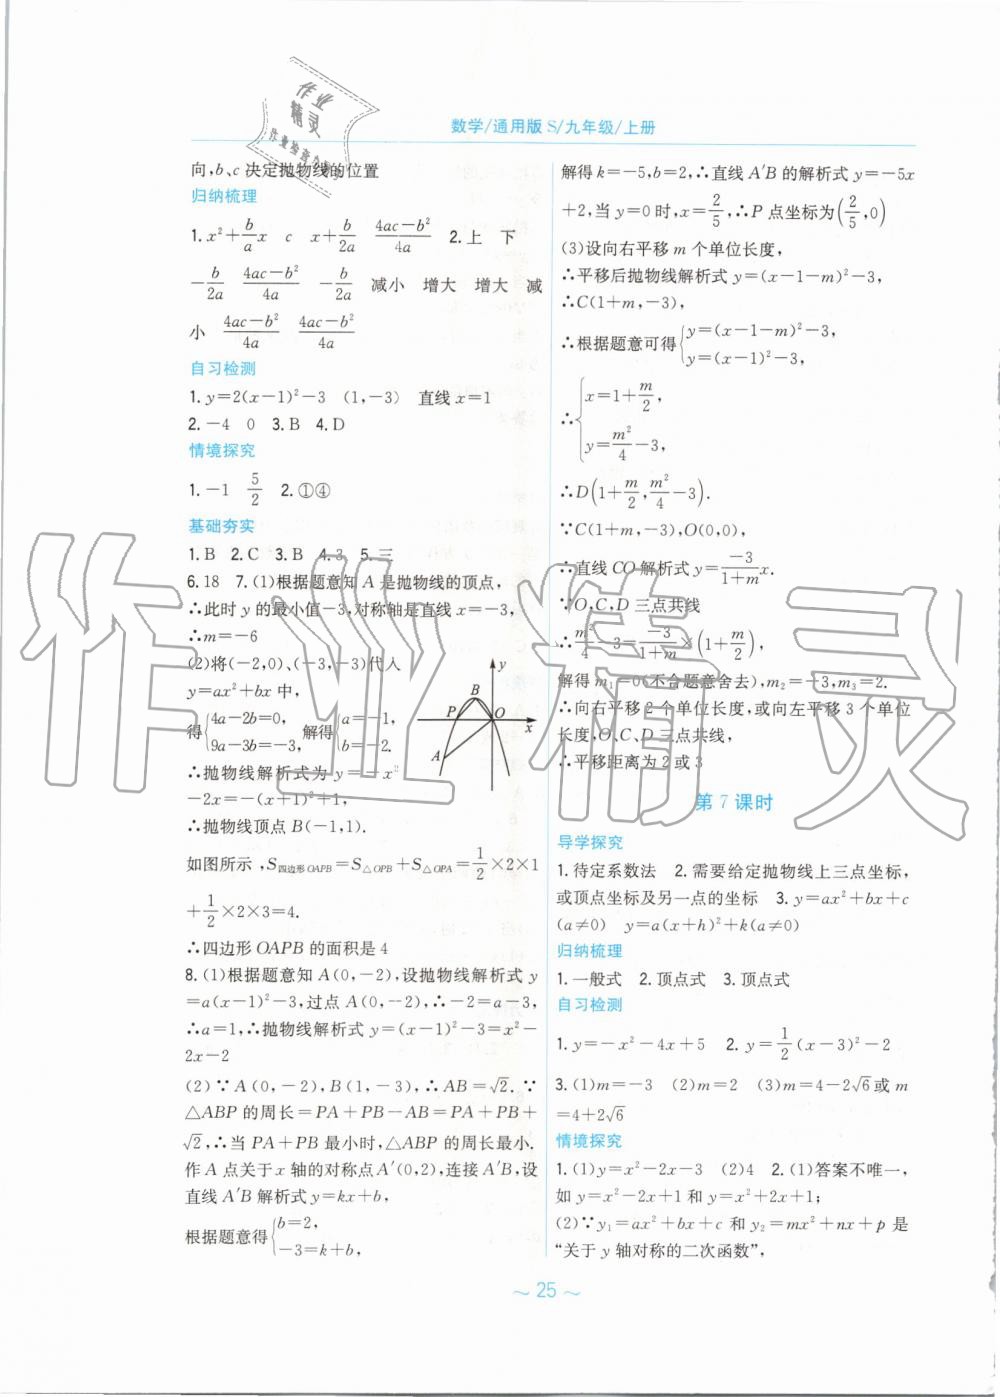 数学/通用版S/九年级/上册
作业
精灵
向,b、c 决定抛物线的位置
归纳梳理
1. x²+b/a x  c  x+b/2a  (4ac-b²)/4a  2. 上  下
-b/2a  (4ac-b²)/4a  -b/2a  减小  增大  增大  减
小  (4ac-b²)/4a  (4ac-b²)/4a
自习检测
1. y=2(x-1)²-3  (1,-3)  直线 x=1
2. -4  0  3. B  4. D
情境探究
1. -1  5/2  2. ①④
基础夯实
1. B  2. C  3. B  4. 3  5. 三
6. 18  7. (1)根据题意知 A 是抛物线的顶点,
∴此时 y 的最小值-3,对称轴是直线 x=-3,
∴m=-6
(2)将(-2,0)、(-3,-3)代入
y=ax²+bx 中,
得{4a-2b=0, 9a-3b=-3, 解得{a=-1, b=-2.
∴抛物线解析式为 y=-x²
-2x=-(x+1)²+1,
∴抛物线顶点 B(-1,1).
y
B
P
O
x
A
如图所示,S四边形OAPB=S△OPB+S△OPA=1/2×2×1
+1/2×2×3=4.
∴四边形 OAPB 的面积是 4
8. (1)根据题意知 A(0,-2),设抛物线解析式 y
=a(x-1)²-3,过点 A(0,-2),∴-2=a-3,
∴a=1,∴抛物线解析式 y=(x-1)²-3=x²-
2x-2
(2)∵A(0,-2),B(1,-3),∴AB=√2. ∵
△ABP 的周长=PA+PB-AB=PA+PB+
√2,∴当 PA+PB 最小时,△ABP 的周长最小.
作 A 点关于 x 轴的对称点 A′(0,2),连接 A′B,设
直线 A′B 解析式 y=kx+b,
根据题意得{b=2, -3=k+b,
解得 k=-5,b=2,∴直线 A′B 的解析式 y=-5x
+2,当 y=0 时,x=2/5,∴P 点坐标为(2/5,0)
(3)设向右平移 m 个单位长度,
∴平移后抛物线解析式 y=(x-1-m)²-3,
∴C(1+m,-3),
∴根据题意可得{y=(x-1-m)²-3, y=(x-1)²-3,
∴{x=1+m/2, y=m²/4-3,
∴D(1+m/2,m²/4-3).
∵C(1+m,-3),O(0,0),
∴直线 CO 解析式 y=-3/(1+m) x.
∵O、C、D 三点共线
∴m²/4-3=-3/(1+m)×(1+m/2),
解得 m₁=0(不合题意舍去),m₂=-3,m₃=2.
∴向右平移 2 个单位长度,或向左平移 3 个单位
长度,O、C、D 三点共线,
∴平移距离为 2 或 3
第 7 课时
导学探究
1. 待定系数法  2. 需要给定抛物线上三点坐标,
或顶点坐标及另一点的坐标  3. y=ax²+bx+c
(a≠0)  y=a(x+h)²+k(a≠0)
归纳梳理
1. 一般式  2. 顶点式  3. 顶点式
自习检测
1. y=-x²-4x+5  2. y=1/2(x-3)²-2
3. (1)m=-3  (2)m=2  (3)m=4-2√6或 m
=4+2√6
情境探究
1. (1)y=x²-2x-3  (2)4  2. (1)答案不唯一,
如 y=x²-2x+1 和 y=x²+2x+1;
(2)∵y₁=ax²+bx+c 和 y₂=mx²+nx+p 是
“关于 y 轴对称的二次函数”,
~ 25 ~
作业精灵